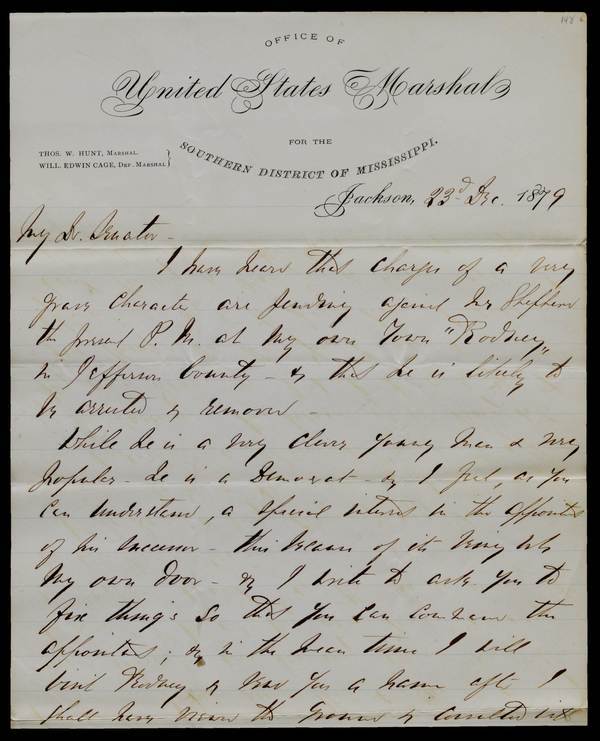 OFFICE OF
United States Marshal
FOR THE
SOUTHERN DISTRICT OF MISSISSIPPI.
THOS. W. HUNT, MARSHAL.
WILL. EDWIN CAGE, DEP. MARSHAL
Jackson, 23d Dec. 1879
My Dr. Senator -
I have heard that charges of a very
grave character are pending against Mr Shepherd
the present P. M. at my own town "Rodney"
in Jefferson County - & that he is likely to
be arrested & removed -
While he is a very clever young man & very
popular - he is a Democrat - & I feel, as you
can understand, a special interest in the appointee
of his successor - this because of its being at
my own door - & I write to ask you to
fix things so that you can command the
appointee ; & in the mean time I will
visit Rodney & send you a name after I
shall have viewed the ground & consulted with